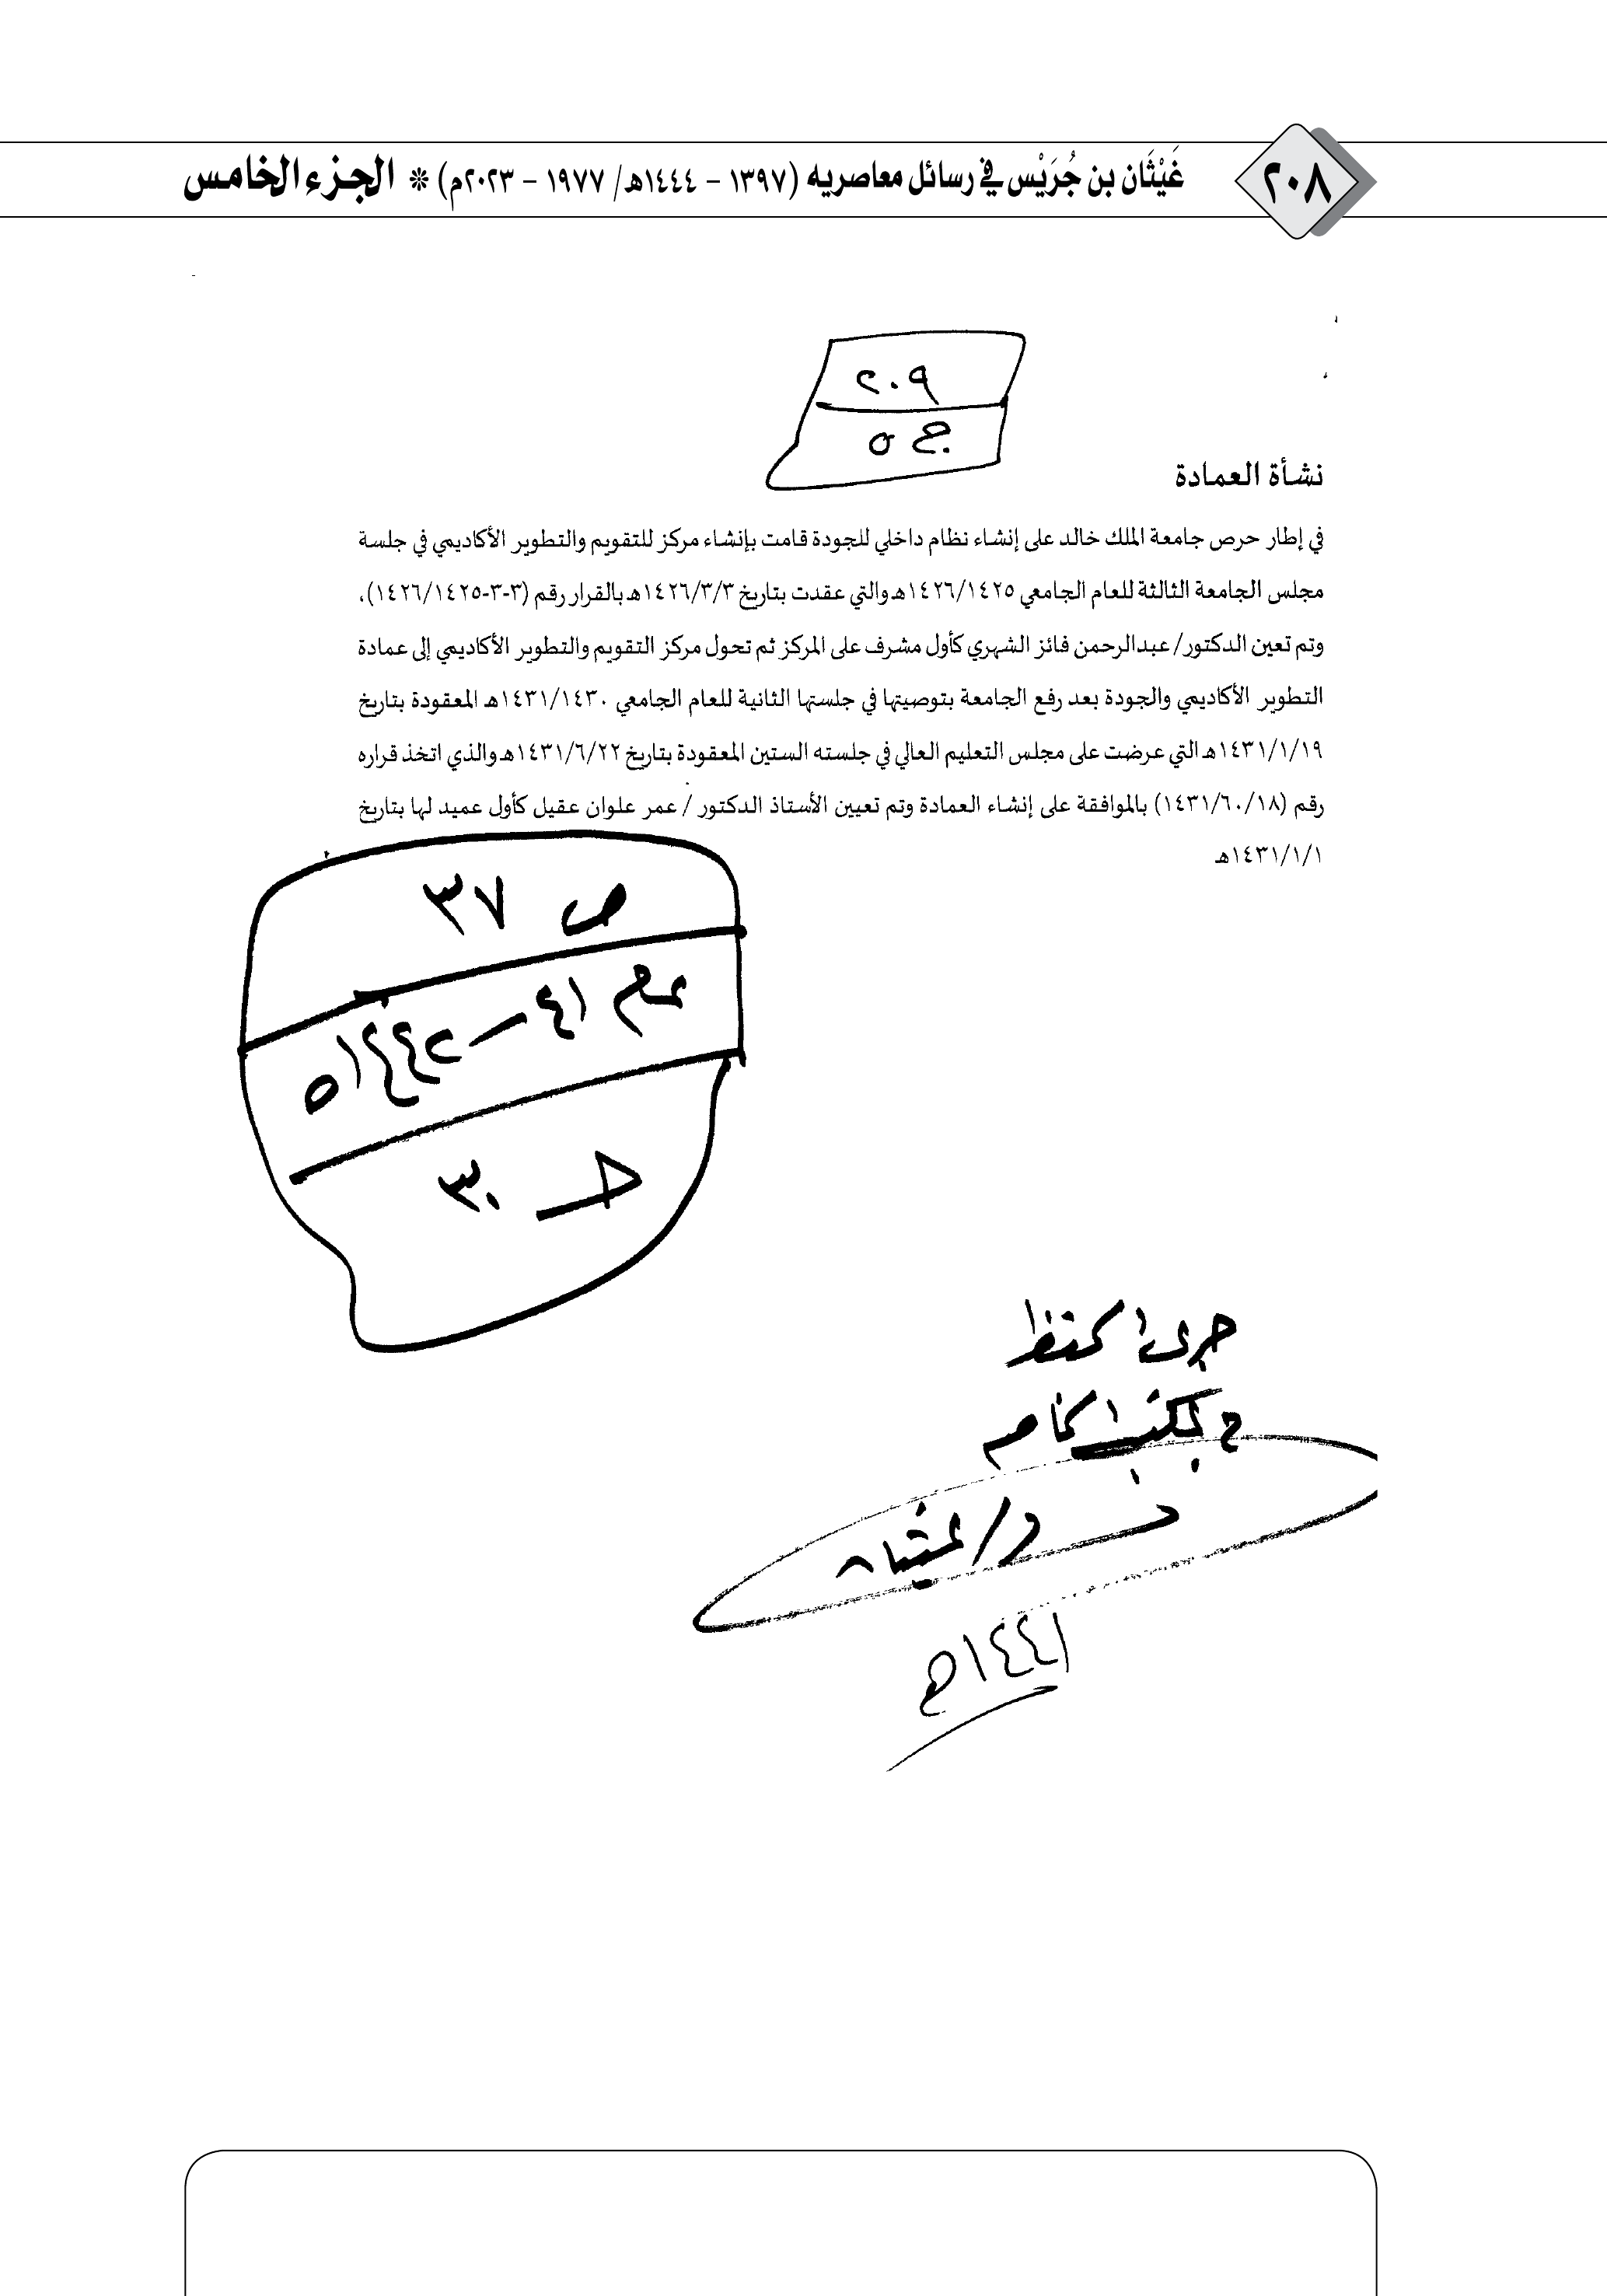 ٢٠٨
غَيْثَان بن جُرَيْس في رسائل معاصريه (١٣٩٧ – ١٤٤٤هـ/ ١٩٧٧ – ٢٠٢٣م) * الجزء الخامس
٢٠٩
ج ٥
نشأة العمادة
في إطار حرص جامعة الملك خالد على إنشاء نظام داخلي للجودة قامت بإنشاء مركز للتقويم والتطوير الأكاديمي في جلسة
مجلس الجامعة الثالثة للعام الجامعي ١٤٢٦/١٤٢٥هـ والتي عقدت بتاريخ ١٤٢٦/٣/٣هـ بالقرار رقم (٣-٣-١٤٢٦/١٤٢٥)،
وتم تعين الدكتور/ عبدالرحمن فائز الشهري كأول مشرف على المركز ثم تحول مركز التقويم والتطوير الأكاديمي إلى عمادة
التطوير الأكاديمي والجودة بعد رفع الجامعة بتوصيتها في جلستها الثانية للعام الجامعي ١٤٣١/١٤٣٠هـ المعقودة بتاريخ
١٤٣١/١/١٩هـ التي عرضت على مجلس التعليم العالي في جلسته الستين المعقودة بتاريخ ١٤٣١/٦/٢٢هـ والذي اتخذ قراره
رقم (١٤٣١/٦٠/١٨) بالموافقة على إنشاء العمادة وتم تعيين الأستاذ الدكتور / عمر علوان عقيل كأول عميد لها بتاريخ
١٤٣١/١/١هـ
ص ٣٧
٤١ – ١٤٤٢ه
٣٠
جرى الحفظ
د/ غيثان
١٤٤١هـ